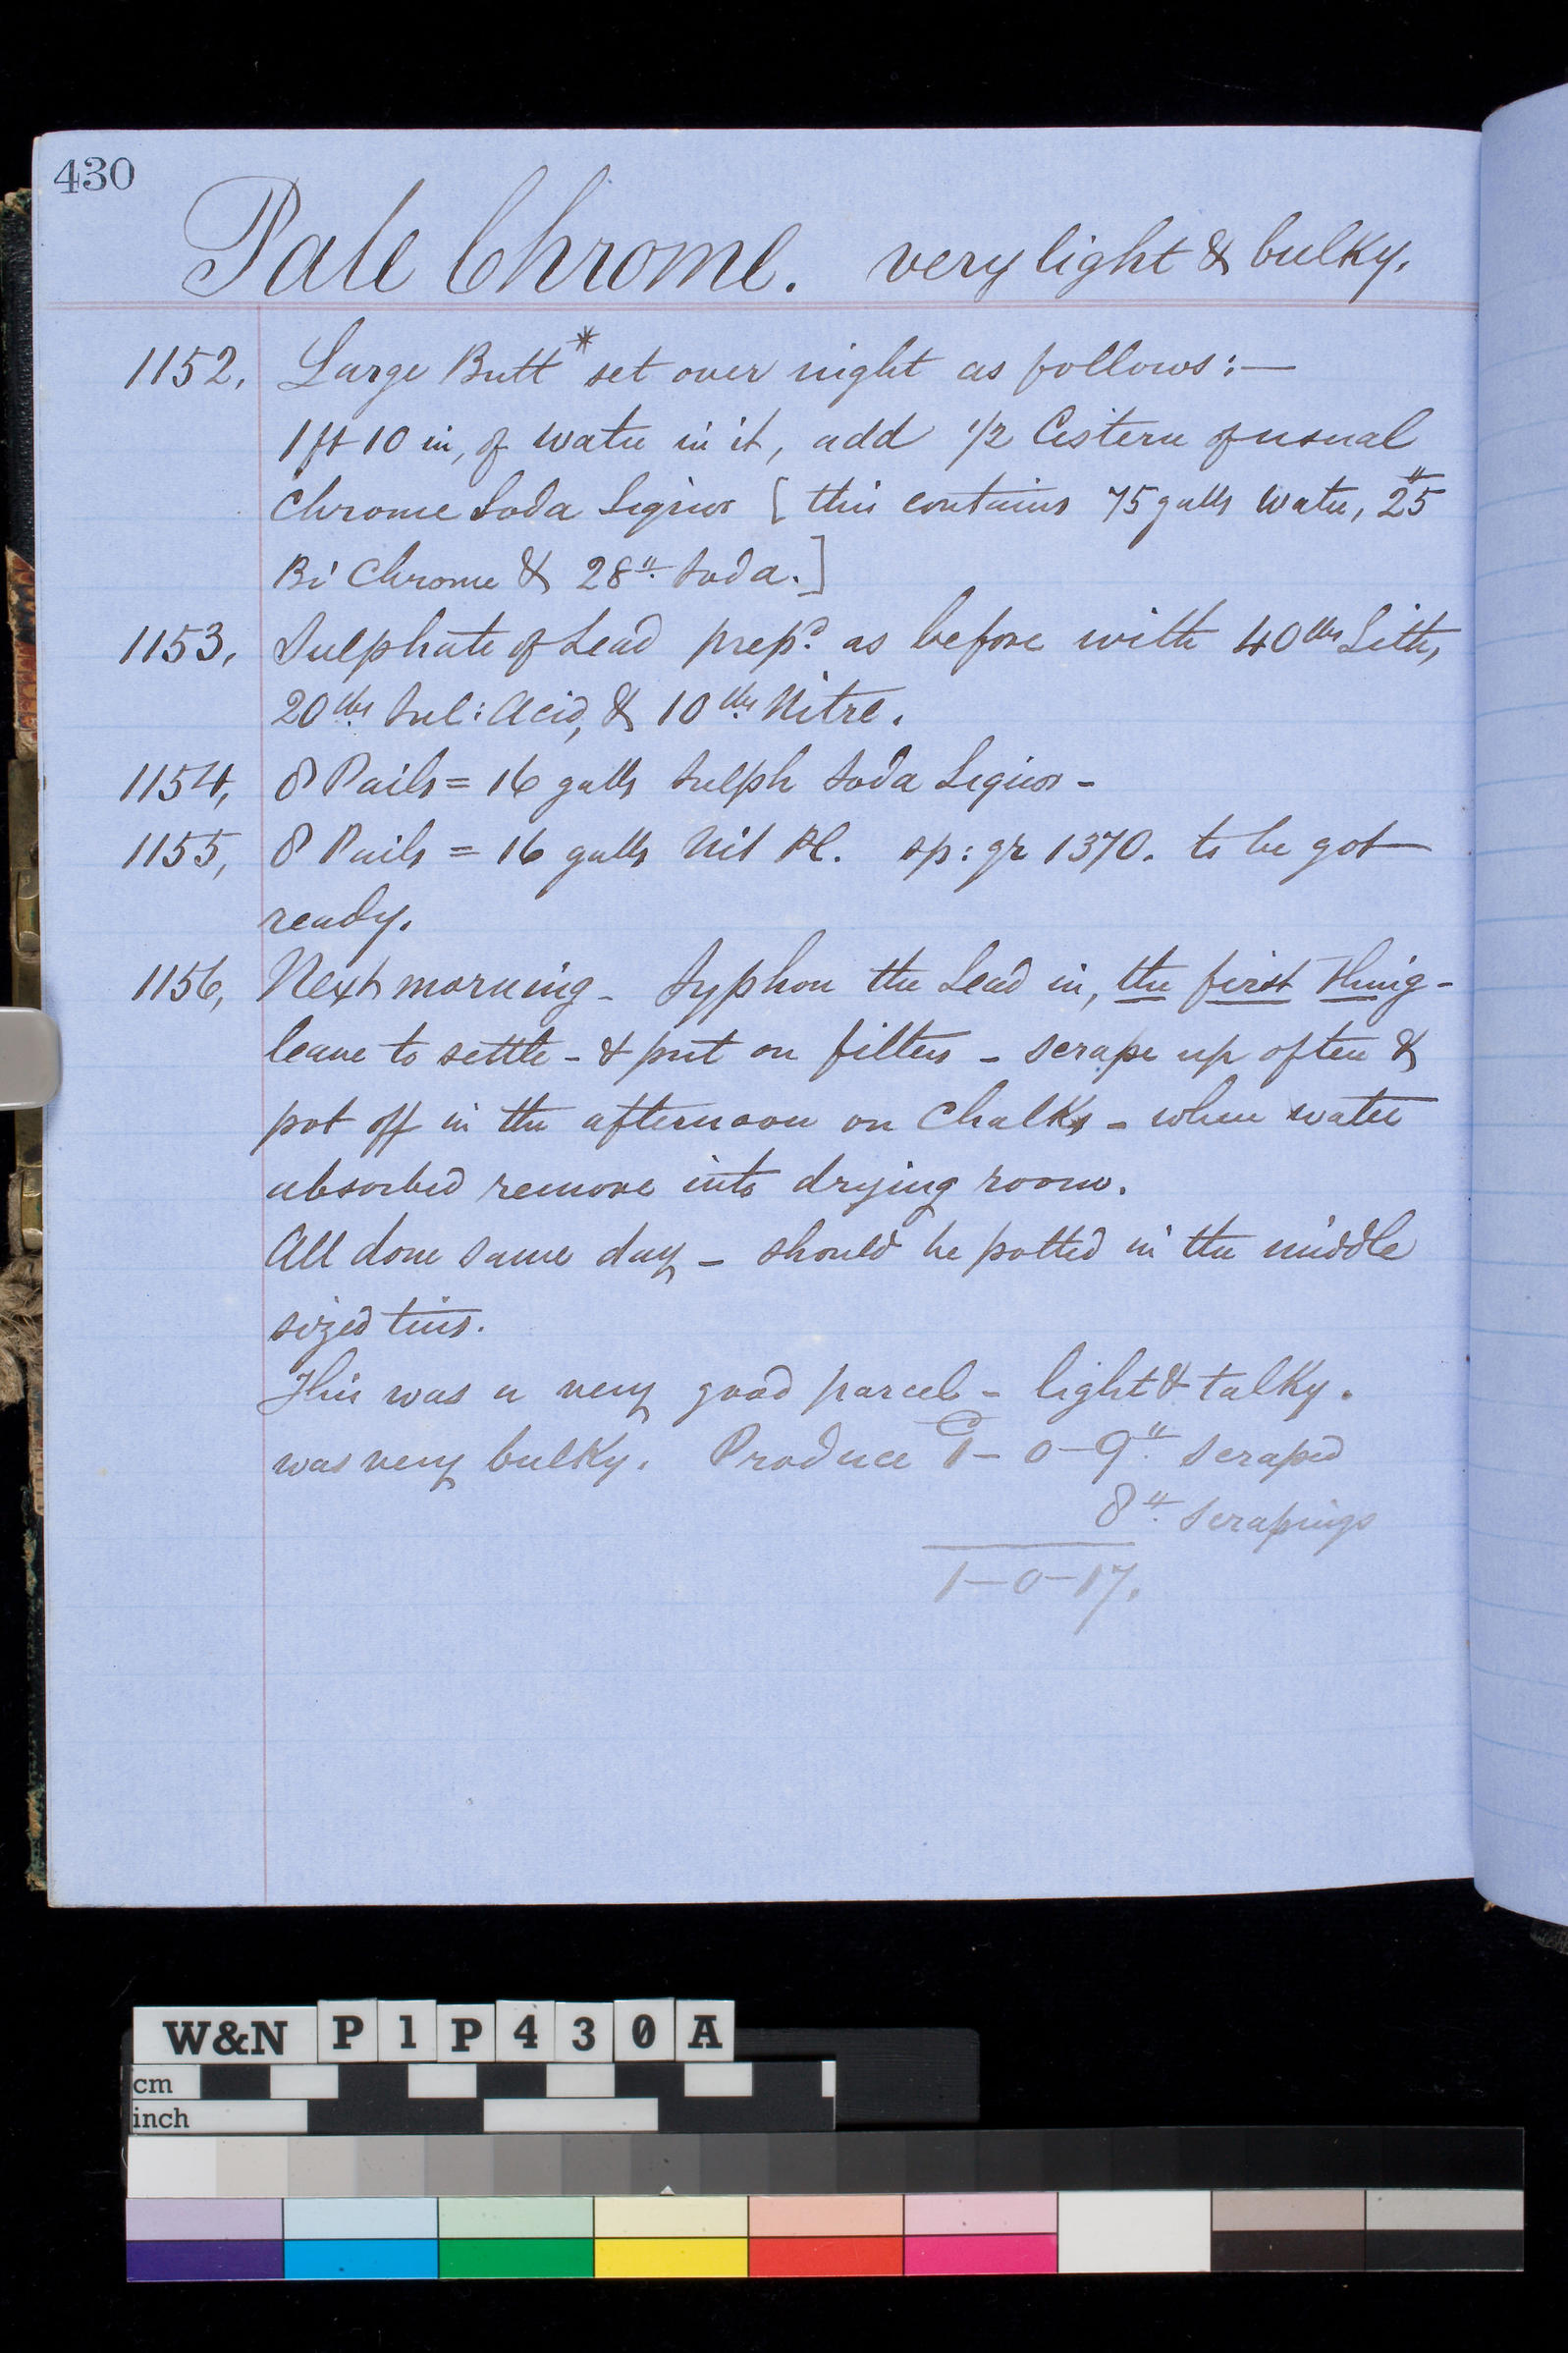 430
Pale Chrome. very light & bulky.
1152, Large Butt * set over night as follows:—
1 ft 10 in, of water in it, add 1/2 Cistern of usual
Chrome Soda Liquor [ this contains 75 galls water, 25 "
Bi Chrome & 28 " Soda. ]
1153, Sulphate of Lead prepd. as before with 40 lbs Lith,
20 lbs. Sul: Acid, & 10 lbs. Nitre.
1154, 8 Pails = 16 galls Sulph Soda Liquor -
1155, 8 Pails = 16 galls Nit Pl. sp: gr 1370. to be got
ready.
1156, Next morning - Syphon the Lead in, the first thing -
leave to settle - & put on filters - scrape up often &
pot off in the afternoon on Chalks - when water
absorbed remove into drying room.
All done same day - should be potted in the middle
sized tins.
This was a very good parcel - light & talky.
was very bulky. Produce C 1 - 0 - 9 " scraped
8 " scrapings
1 - 0 - 17.
W&N P1P430A
cm
inch